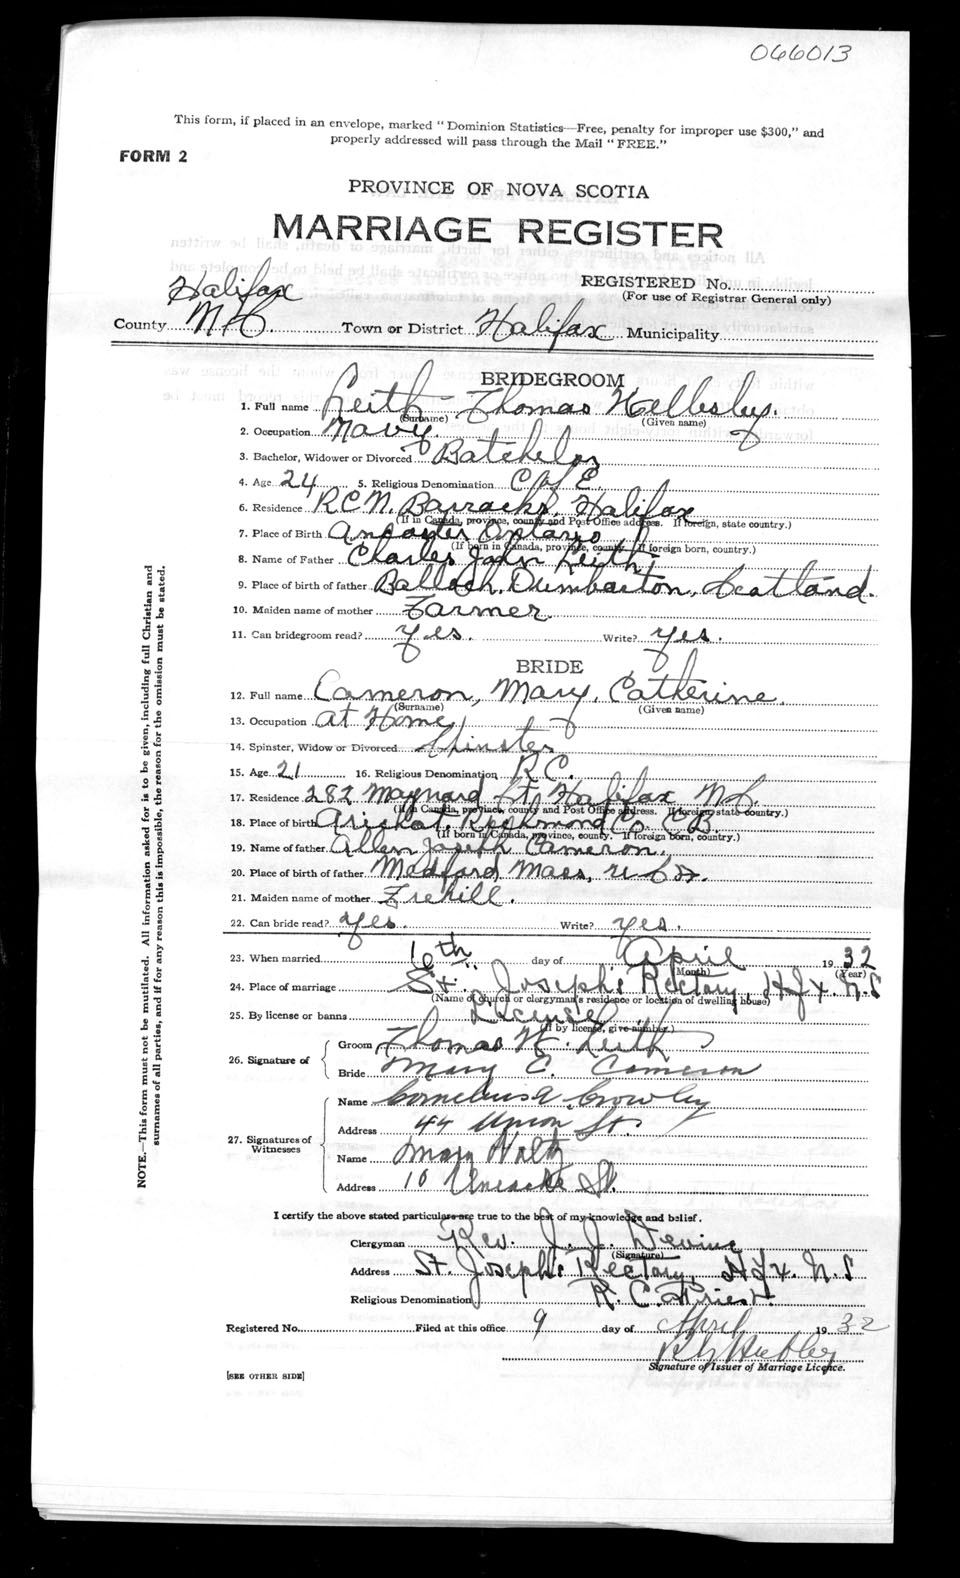 066013
This form, if placed in an envelope, marked "Dominion Statistics—Free, penalty for improper use $300," and
properly addressed will pass through the Mail "FREE."
FORM 2
PROVINCE OF NOVA SCOTIA
MARRIAGE REGISTER
REGISTERED No.
(For use of Registrar General only)
Halifax
County N.S. Town or District Halifax Municipality
BRIDEGROOM
1. Full name Keith Thomas
(Surname) (Given name)
2. Occupation Navy.
3. Bachelor, Widower or Divorced Batchelor
4. Age 24 5. Religious Denomination C of E.
6. Residence R.C.N. Barracks, Halifax
(If in Canada, province, county and Post Office address. If foreign, state country.)
7. Place of Birth Ancaster Ontario
(If born in Canada, province, county. If foreign born, country.)
8. Name of Father Charles John Keith
9. Place of birth of father Balloch, Dumbarton, Scotland.
10. Maiden name of mother Farmer
11. Can bridegroom read? yes. Write? yes.
BRIDE
12. Full name Cameron, Mary, Catherine
(Surname) (Given name)
13. Occupation at Home
14. Spinster, Widow or Divorced Spinster
15. Age 21 16. Religious Denomination R.C.
17. Residence 282 Maynard St, Halifax N.S.
(If in Canada, province, county and Post Office address. If foreign, state country.)
18. Place of birth Arichat, Richmond Co C.B.
(If born in Canada, province, county. If foreign born, country.)
19. Name of father Allen Joseph Cameron,
20. Place of birth of father Medford, Mass, U.S.A.
21. Maiden name of mother
22. Can bride read? yes. Write? yes.
23. When married 16th day of April 1932
(Month) (Year)
24. Place of marriage St. Joseph's Rectory, Hfx. N.S
(Name of church or clergyman's residence or location of dwelling house)
25. By license or banns License
(If by license, give number.)
26. Signature of
Groom Thomas H. Keith
Bride Mary C. Cameron
27. Signatures of Witnesses
Name Cornelius Crowley
Address 44 Union St.
Name Mary
Address 10 Uniacke St.
I certify the above stated particulars are true to the best of my knowledge and belief.
Clergyman Rev. J. J. Devine
(Signature)
Address St. Joseph's Rectory, Hfx. N.S
Religious Denomination R. C. Priest.
Registered No. Filed at this office 9 day of April 1932
Signature of Issuer of Marriage Licence.
[SEE OTHER SIDE]
NOTE.—This form must not be mutilated. All information asked for is to be given, including full Christian and
surnames of all parties, and if for any reason this is impossible, the reason for the omission must be stated.